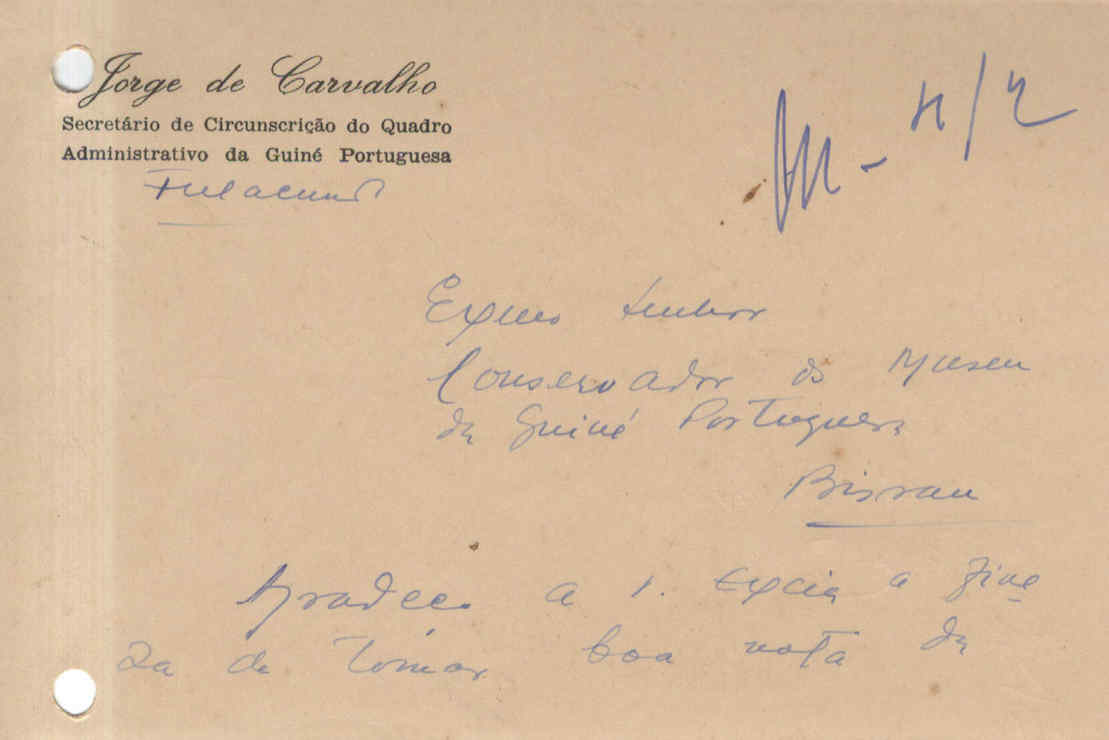 Jorge de Carvalho
Secretário de Circunscrição do Quadro
Administrativo da Guiné Portuguesa
Fulacunda
Exmo Senhor
Conservador do Museu
da Guiné Portuguesa
Bissau
Agradeço a V. Excia a fine
za de tomar boa nota da